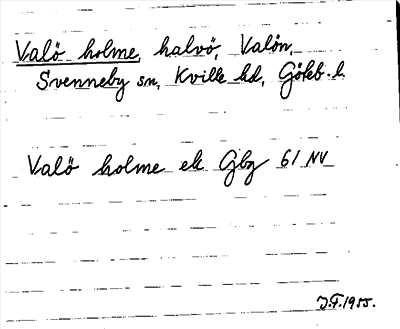 Valö holme, halvö, Valön,
Svenneby sn, Kville hd, Göteb. l.
Valö holme ek Gbg 61 NV
J.F. 1955.